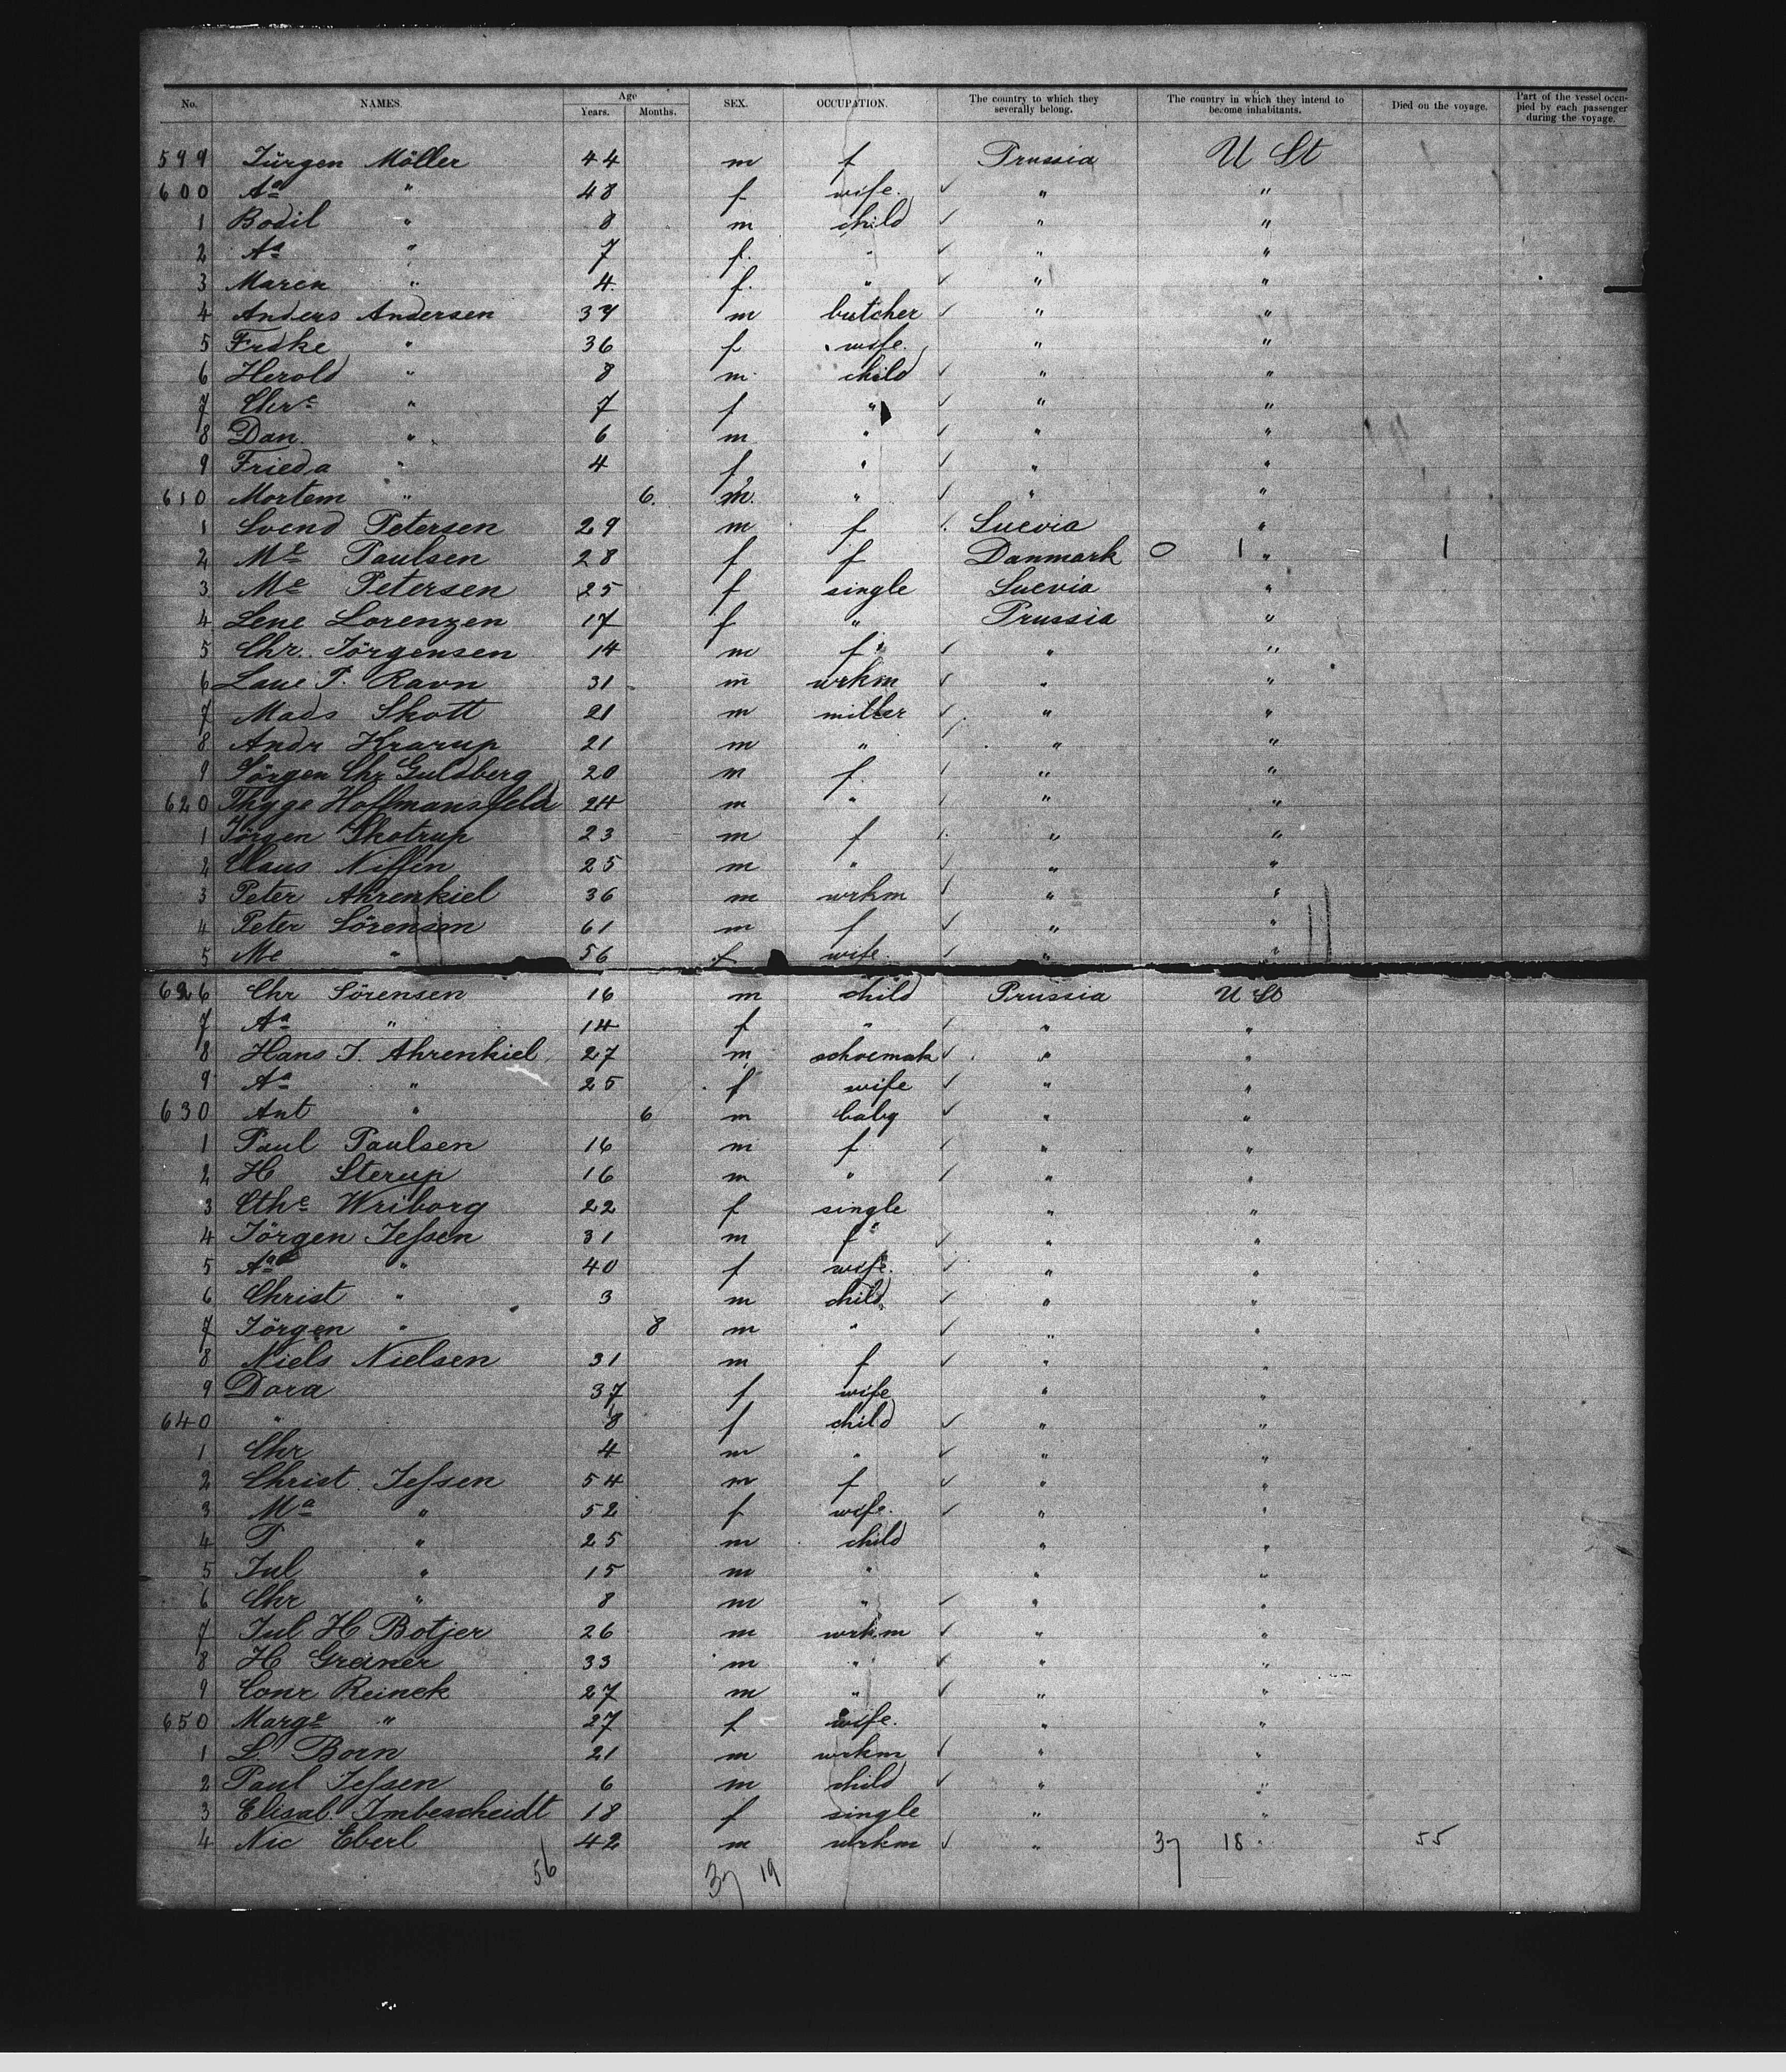 No. NAMES. Age Years. Months. SEX. OCCUPATION. The country to which they severally belong. The country in which they intend to become inhabitants. Died on the voyage. Part of the vessel occupied by each passenger during the voyage.
599 Jürgen Möller 44 m f Prussia U St
600 Aa " 48 f wife " "
1 Bodil " 8 m child " "
2 Aa " 7 f " " "
3 Maren " 4 f. " " "
4 Anders Andersen 37 m butcher " "
5 Frdke " 36 f wife " "
6 Herold " 8 m child " "
7 Chre " 7 f " " "
8 Dan " 6 m " " "
9 Frieda " 4 f " " "
610 Mortem " 6 m " " "
1 Svend Petersen 29 m f Suevia "
2 Me Paulsen 28 f f Danmark 0 1 " 1
3 Me Petersen 25 f single Suevia "
4 Lene Lorenzen 17 f " Prussia "
5 Chr. Jörgensen 14 m f " "
6 Laue P. Ravn 31 m wrkm " "
7 Mads Skott 21 m miller " "
8 Andr Krarup 21 m " " "
9 Jörgen Chr Guldberg 20 m f " "
620 Thyge Hoffmansfeld 24 m " " "
1 Jörgen Skotrup 23 m f " "
2 Claus Nissen 25 m " " "
3 Peter Ahrenkiel 36 m wrkm " "
4 Peter Sörensen 61 m f " "
5 Me " 56 f wife " "
626 Chr Sörensen 16 m child Prussia U St
7 Aa " 14 f " " "
8 Hans J. Ahrenkiel 27 m schoemak " "
9 Aa " 25 f wife " "
630 Ant " 6 m baby " "
1 Paul Paulsen 16 m f " "
2 H Sterup 16 m " " "
3 Cthe Wriborg 22 f single " "
4 Jörgen Jessen 31 m f " "
5 Aa " 40 f wife " "
6 Christ " 3 m child " "
7 Jörgen " 8 m " " "
8 Niels Nielsen 31 m f " "
9 Dora 37 f wife " "
640 " 8 f child " "
1 Chr 4 m " " "
2 Christ. Jessen 54 m f " "
3 Ma " 52 f wife " "
4 P " 25 m child " "
5 Jul " 15 m " " "
6 Chr " 8 m " " "
7 Jul H Botjer 26 m wrkm " "
8 H Greiner 33 m " " "
9 Conr Reinek 27 m " " "
650 Marge " 27 f wife " "
1 L. Born 21 m wrkm " "
2 Paul Jessen 6 m child " "
3 Elisab. Imbescheidt 18 f single " "
4 Nic Eberl 42 m wrkm " 37 18 " 55
56 37 19